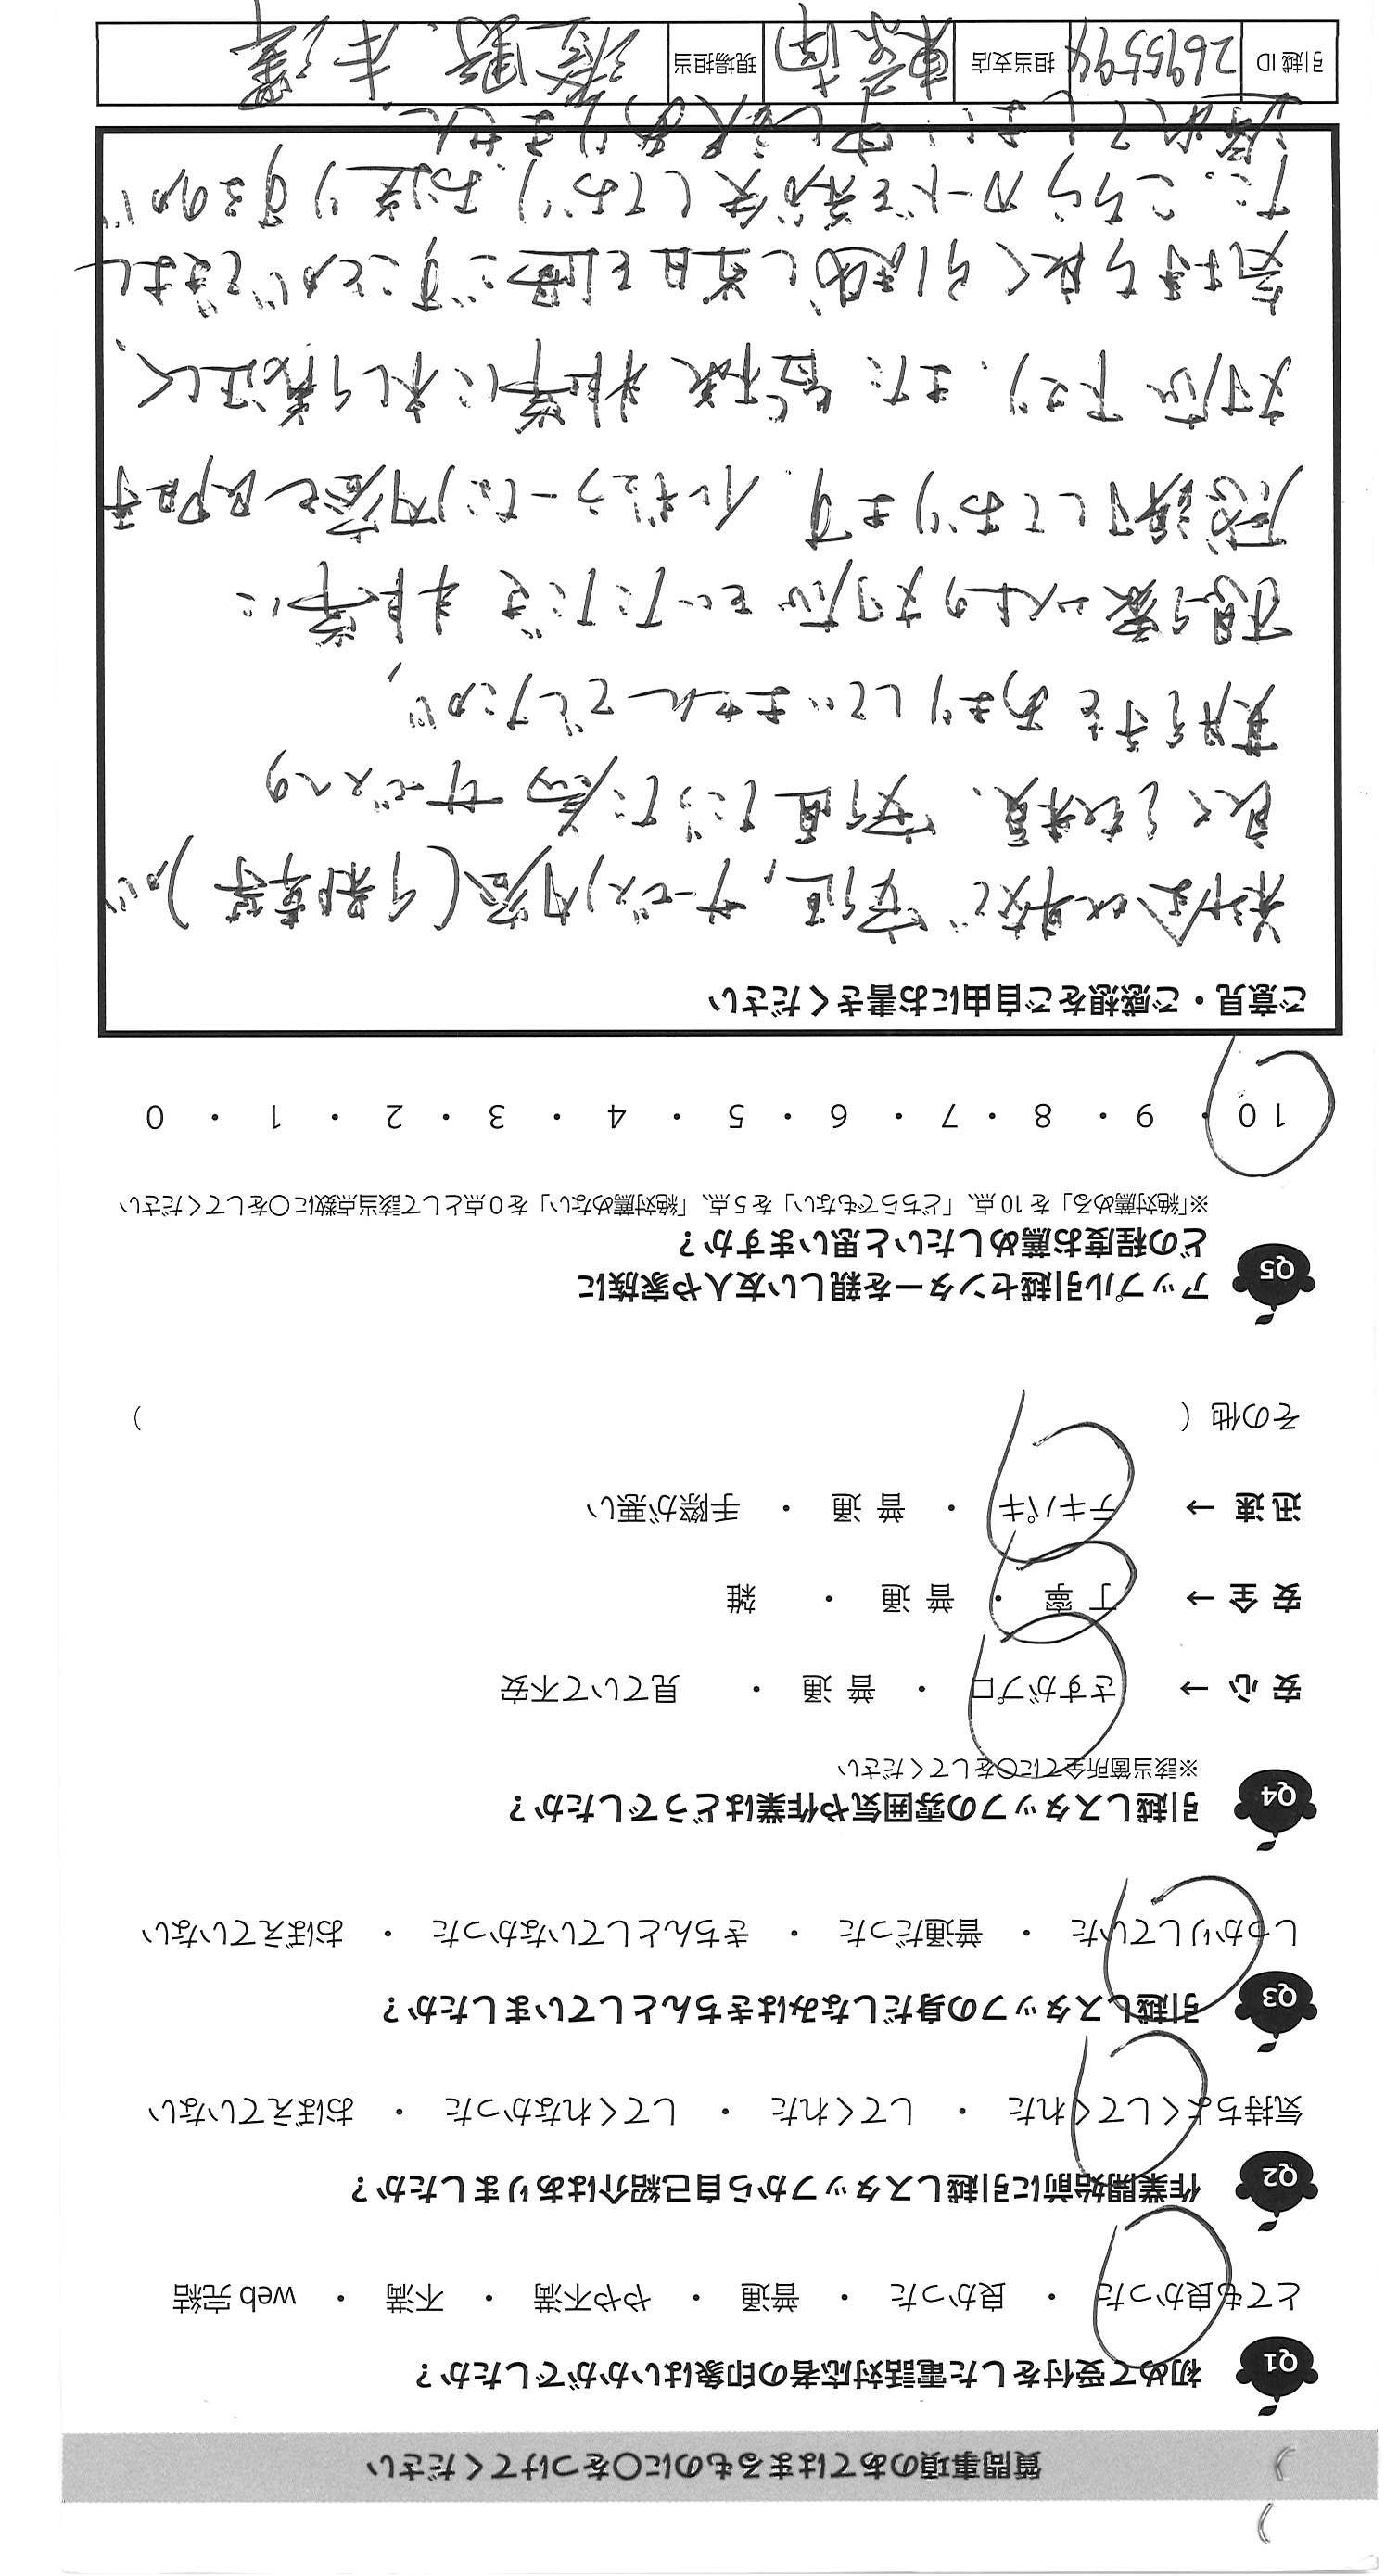 質問事項のあてはまるものに〇をつけてください
Q1 初めて受付をした電話対応者の印象はいかがでしたか？
とても良かった ・ 良かった ・ 普通 ・ やや不満 ・ 不満 ・ web 完結
Q2 作業開始前に引越しスタッフから自己紹介はありましたか？
気持ちよくしてくれた ・ してくれた ・ してくれなかった ・ おぼえていない
Q3 引越しスタッフの身だしなみはきちんとしていましたか？
しっかりしていた ・ 普通だった ・ きちんとしていなかった ・ おぼえていない
Q4 引越しスタッフの雰囲気や作業はどうでしたか？
※該当箇所全てに〇をしてください
安 心 → さすがプロ ・ 普 通 ・ 見ていて不安
安 全 → 丁 寧 ・ 普 通 ・ 雑
迅 速 → テキパキ ・ 普 通 ・ 手際が悪い
その他（ ）
Q5 アップル引越センターを親しい友人や家族に
どの程度お薦めしたいと思いますか？
※「絶対薦める」を 10 点、「どちらでもない」を 5 点、「絶対薦めない」を 0 点として該当点数に〇をしてください
10 ・ 9 ・ 8 ・ 7 ・ 6 ・ 5 ・ 4 ・ 3 ・ 2 ・ 1 ・ 0
ご意見・ご感想をご自由にお書きください
料金比較で安価、サービス内容(割引等)が
良く 安価だった為サービスへの
期待をあまりしていませんでしたが、
予想以上の対応をいただき 非常に
感謝しております。イレギュラーな内容も
対応下さり、また 皆様 非常に礼儀正しく、
気持ち良く引越し当日を過ごすことができまし
た。こちらカードを紛失しており、お送りするのが
遅れてしまい申し訳ありません。
引越 ID 2695594 担当支店 東京南 現場担当